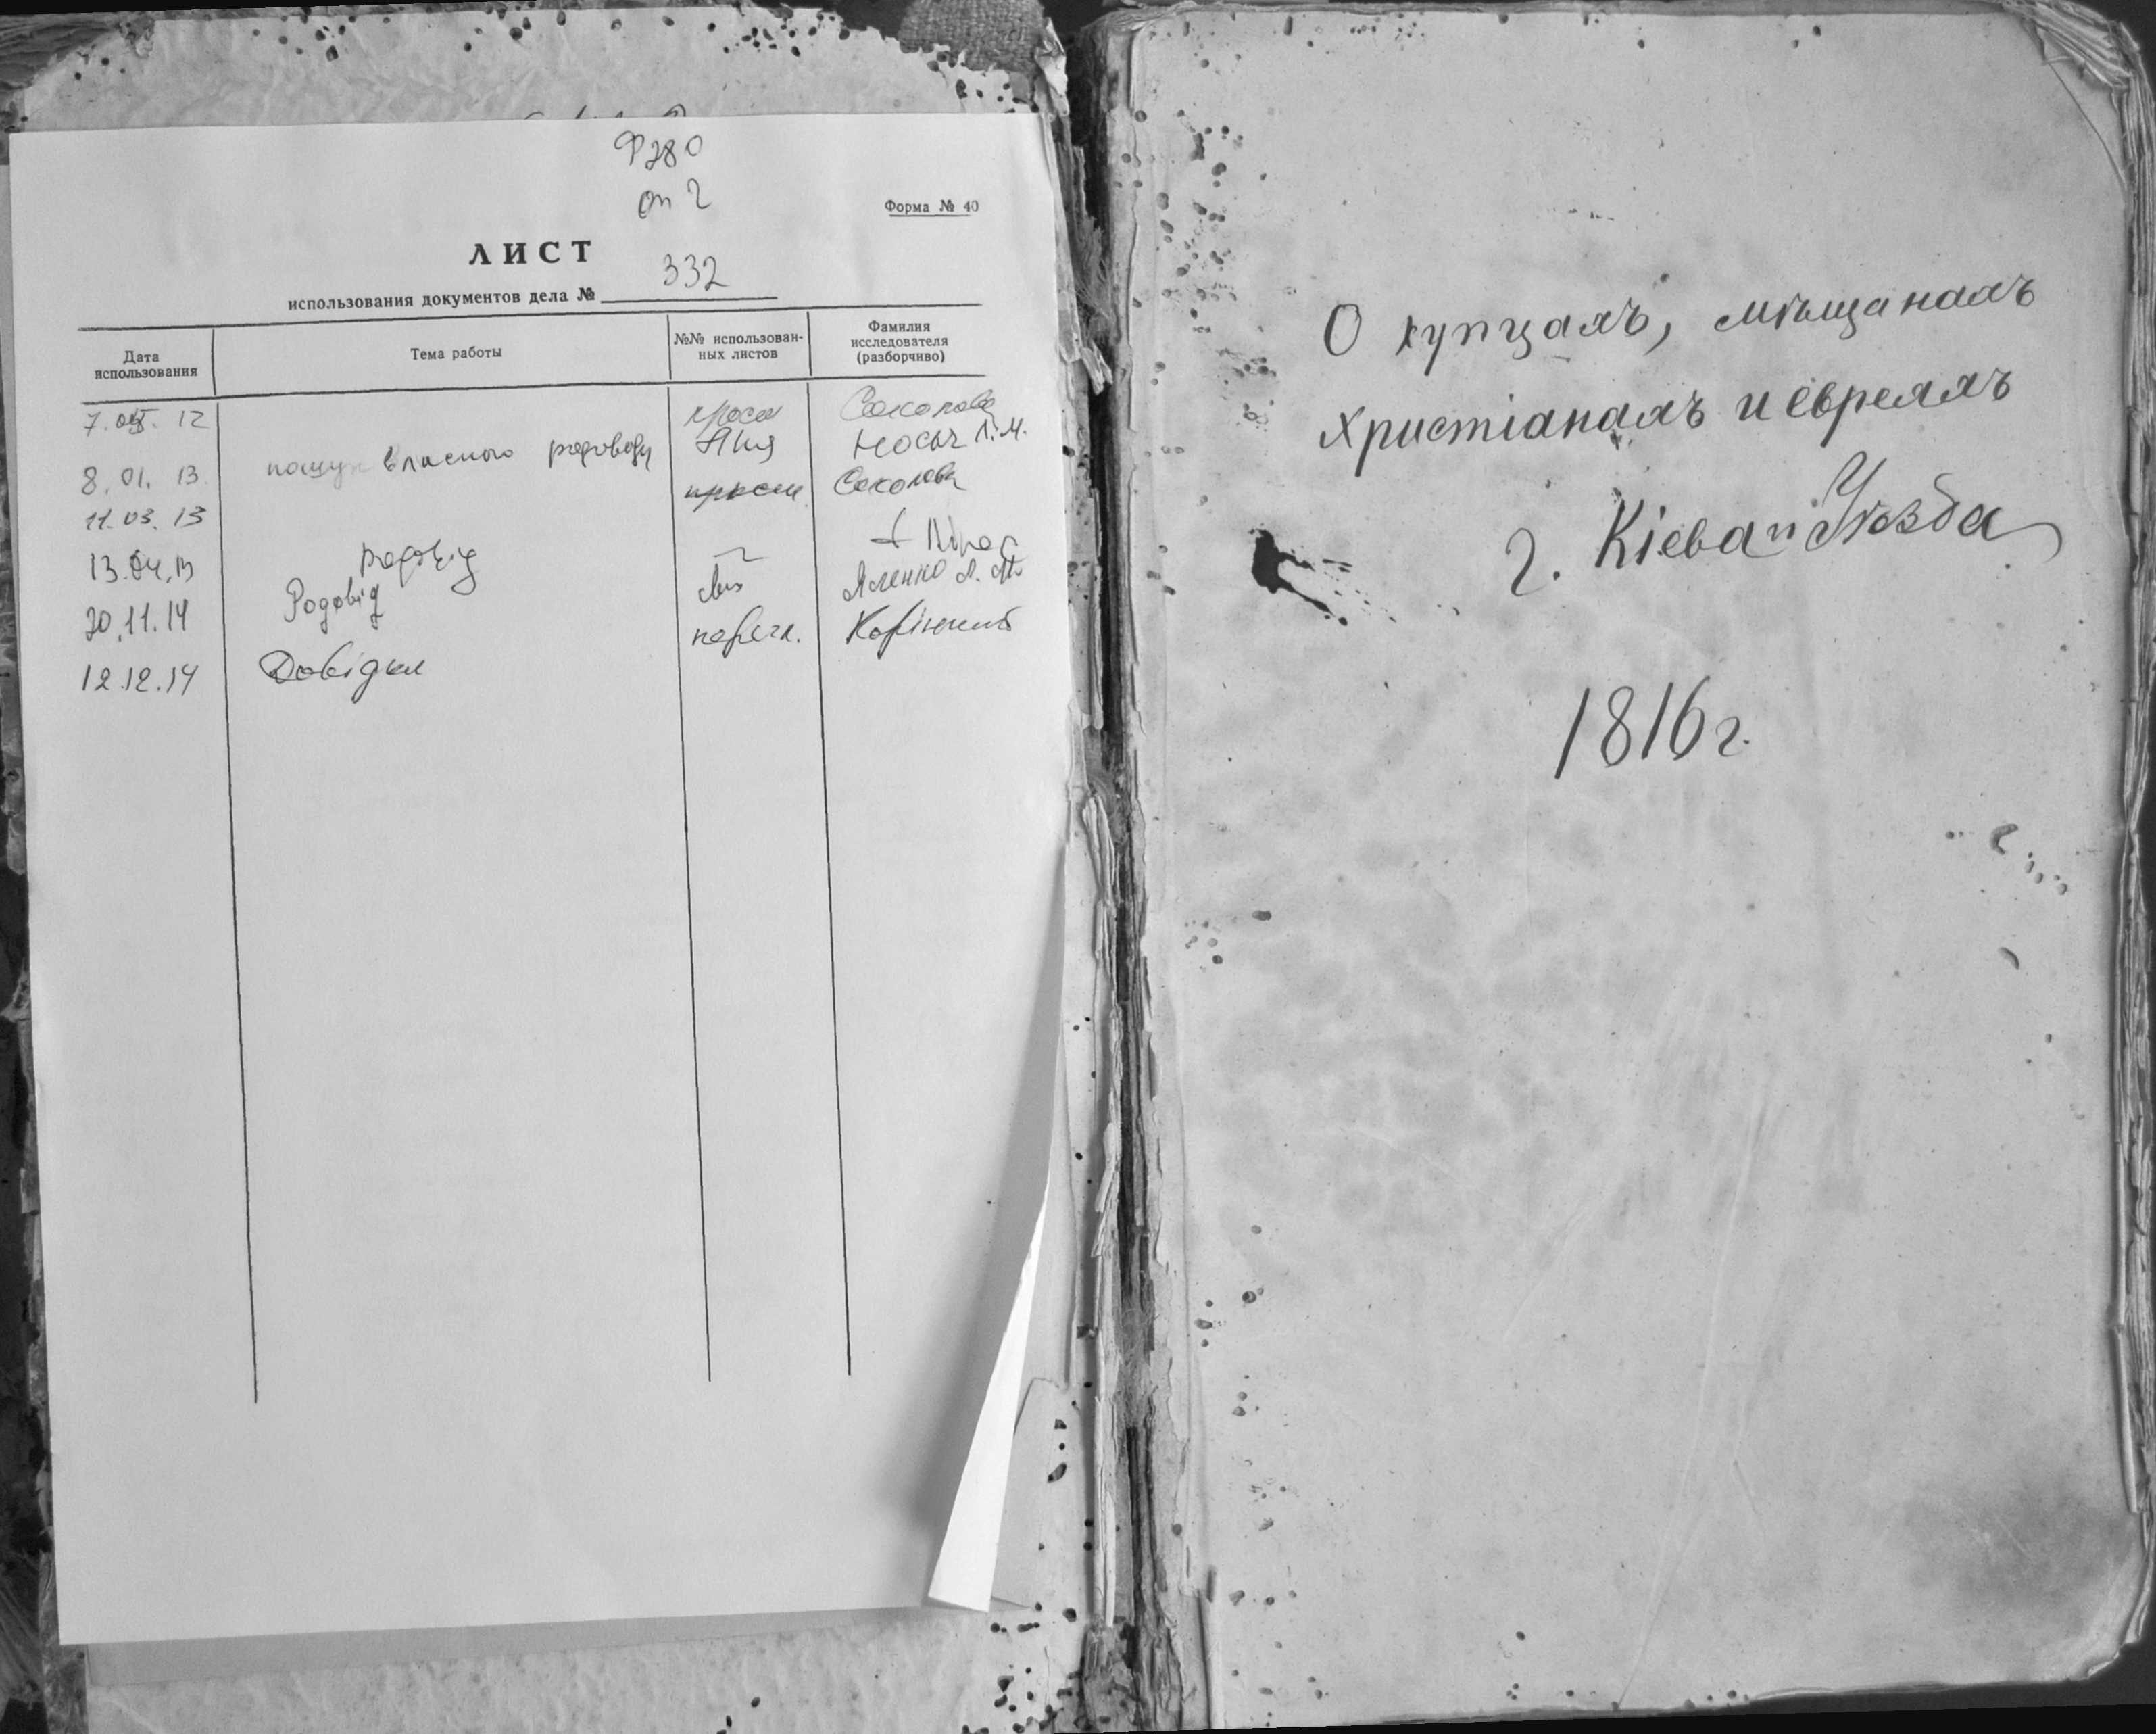 Ф 280
оп 2
Форма № 40
ЛИСТ
использования документов дела № 332
Дата использования
Тема работы
№№ использован-
ных листов
Фамилия
исследователя
(разборчиво)
7. 12 Соколова
пошук власного родоводу Носач Л.М.
8.01.13 Соколова
11.03.13
13.04.13 родовід
Родовід
20.11.14 перегл.
12.12.14 Довідка
О купцахъ, мѣщанахъ
христіанахъ и евреяхъ
г. Кіева и Уѣзда
1816 г.